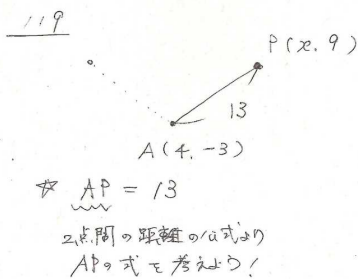 119
P(x, 9)
13
A(4, -3)
☆ AP = 13
2点間の距離の公式より
APの式を考えよう!